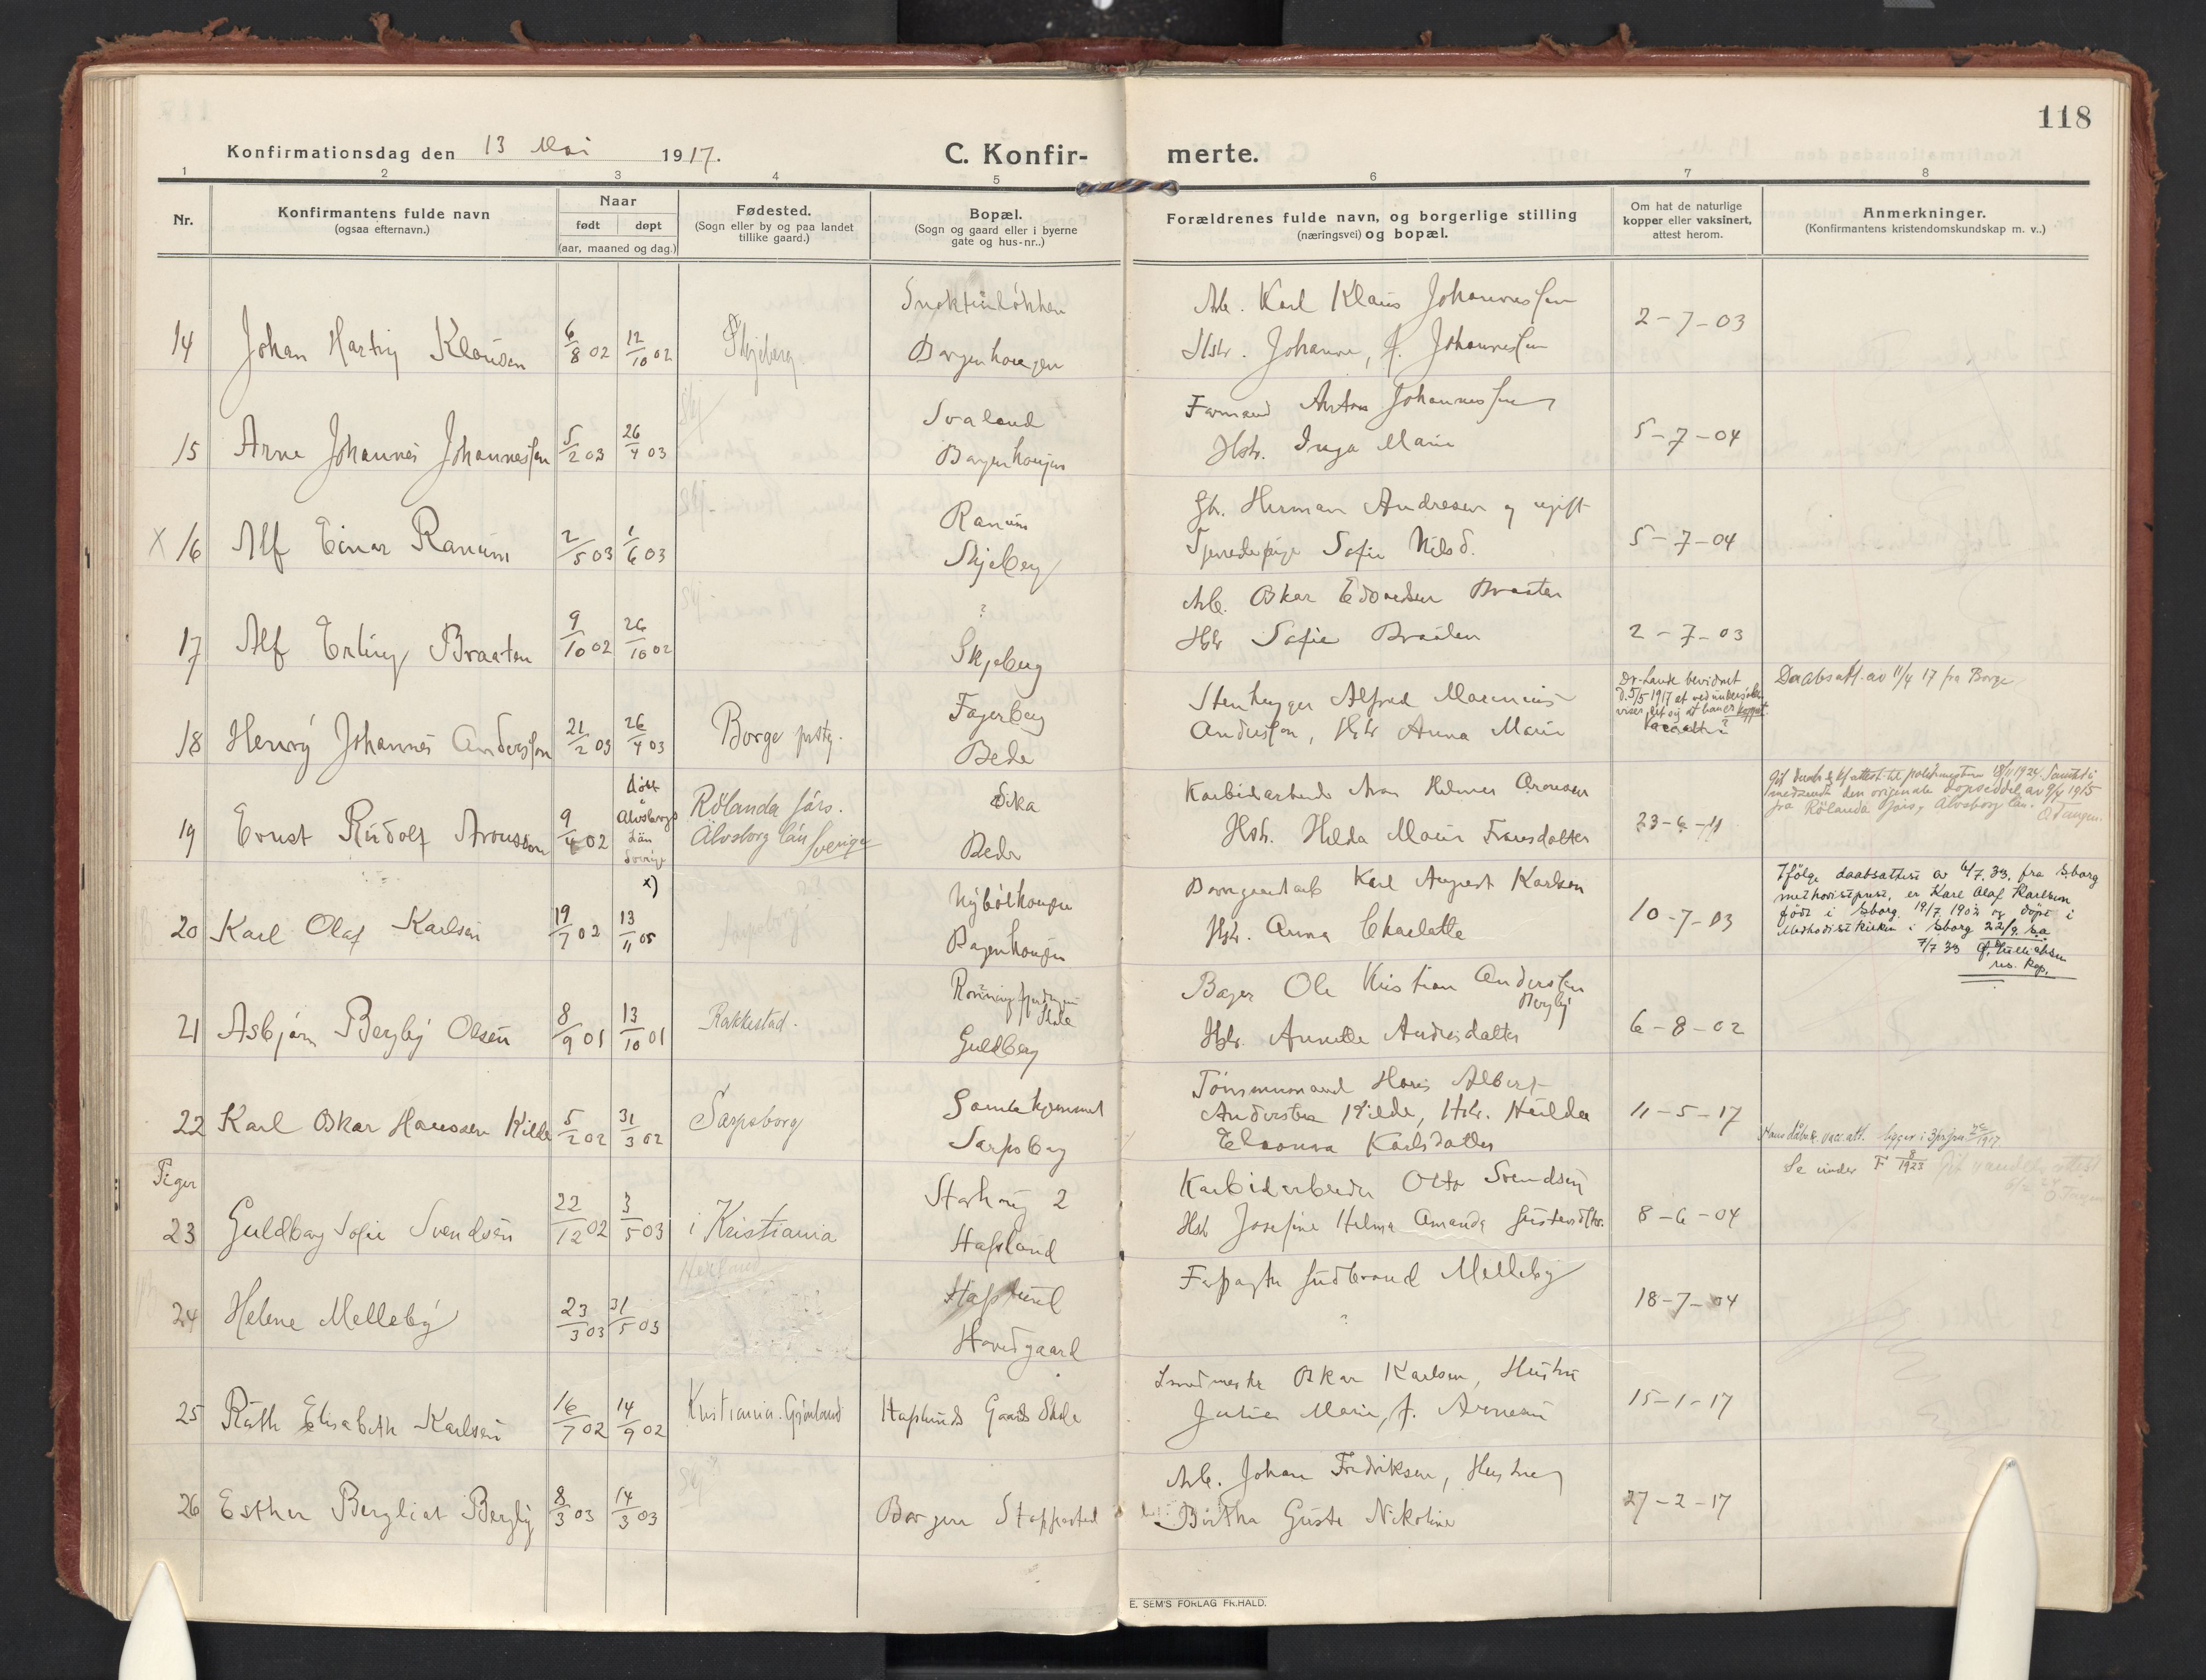 118
Konfirmationsdag den 13 Mai 1917.
C. Konfir- merte.
1 2 3 4 5 6 7 8
Nr.
Konfirmantens fulde navn
(ogsaa efternavn.)
Naar
født døpt
(aar, maaned og dag.)
Fødested.
(Sogn eller by og paa landet
tillike gaard.)
Bopæl.
(Sogn og gaard eller i byerne
gate og hus-nr..)
Forældrenes fulde navn, og borgerlige stilling
(næringsvei) og bopæl.
Om hat de naturlige
kopper eller vaksinert,
attest herom.
Anmerkninger.
(Konfirmantens kristendomskundskap m. v..)
Arb. Karl Klaus Johannessen
14 Johan Hartvig Klausen 6/8 02 12/10 02 Skjeberg Borgenhaugen Hstr. Johanne, f. Johannessen 2-7-03
Svaland Formand Anton Johannessen
15 Arne Johannes Johannessen 5/2 03 26/4 03 Skj Borgenhaugen Hstr. Inga Marie 5-7-04
Ranum Gbr. Herman Andresen og ugift
X 16 Alf Einar Ranum 2/5 03 1/6 03 Skj. Skjeberg Tjenestepige Sofie Nilsd. 5-7-04
? Arb. Oskar Edvardsen Braaten
17 Alf Erling Braaten 9/10 02 26/10 02 Skj Skjeberg Hstr Sofie Braaten 2-7-03
Fagerberg Stenhugger Alfred Marinius
18 Henry Johannes Anderssen 21/2 03 26/4 03 Borge prstg. Bede Anderssen, Hstr Anna Marie
Daabsatt. av 11/4 17 fra Borge
døbt Älvsborgs Län Sverige
Rölandaförs. Sika
19 Ernst Rudolf Aronsson 9/4 02 Älvsborg län Sverige Bede Hstr. Hilda Maria Fransdatter 23-6-11
fra Rölanda förs, Älvsborg län. O Tangen.
x)
Karl August Karlsen
20 Karl Olaf Karlsen 19/7 02 13/11 05 Sarpsborg Borgenhaugen Hstr. Anna Charlotte 10-7-03
Ifølge daabsattest av 6/7.33. fra Sborg
methodistprest, er Karl Olaf Karlsen
født i Sborg. 19/7 1902 og døpt i
Methodistkirken i Sborg 22/9. s.a
7/7 33
res. kap.
Bager Ole Kristian Anderssen
Bergby
21 Asbjørn Bergby Olsen 8/9 01 13/10 01 Rakkestad. Guldberg Hstr. Annette Andersdatter 6-8-02
Gamlehjemmet Hans Albert
22 Karl Oskar Hanssen Kilde 5/2 02 31/3 02 Sarpsborg Sarpsborg Anderssen Kilde, Hstr. Hulda 11-5-17
Eleonora Karlsdatter
Se under F 8/1923
Piger
Karbidarbeider Otto Svendsen
23 Guldborg Sofie Svendsen 22/12 02 3/5 03 i Kristiania Hafslund Hstr Josefine Helma Amanda Gustavsdtr. 8-6-04
Hafslund Forpagter Gudbrand Melleby
24 Helene Melleby 23/3 03 31/5 03 Hafslund Hovedgaard ? 18-7-04
Smedmester Oskar Karlsen, Hustru
25 Ruth Elisabeth Karlsen 16/7 02 14/9 02 Kristiania. Grönland Hafslunds Gaards Skole Julie Marie, f. Arnesen 15-1-17
Arb. Johan Fredriksen, Hustru
26 Esther Bergliot Bergby 8/3 03 14/3 03 Skj Borgen Stoppested Birtha Guste Nikoline 27-2-17
E. SEM'S FORLAG FR.HALD.